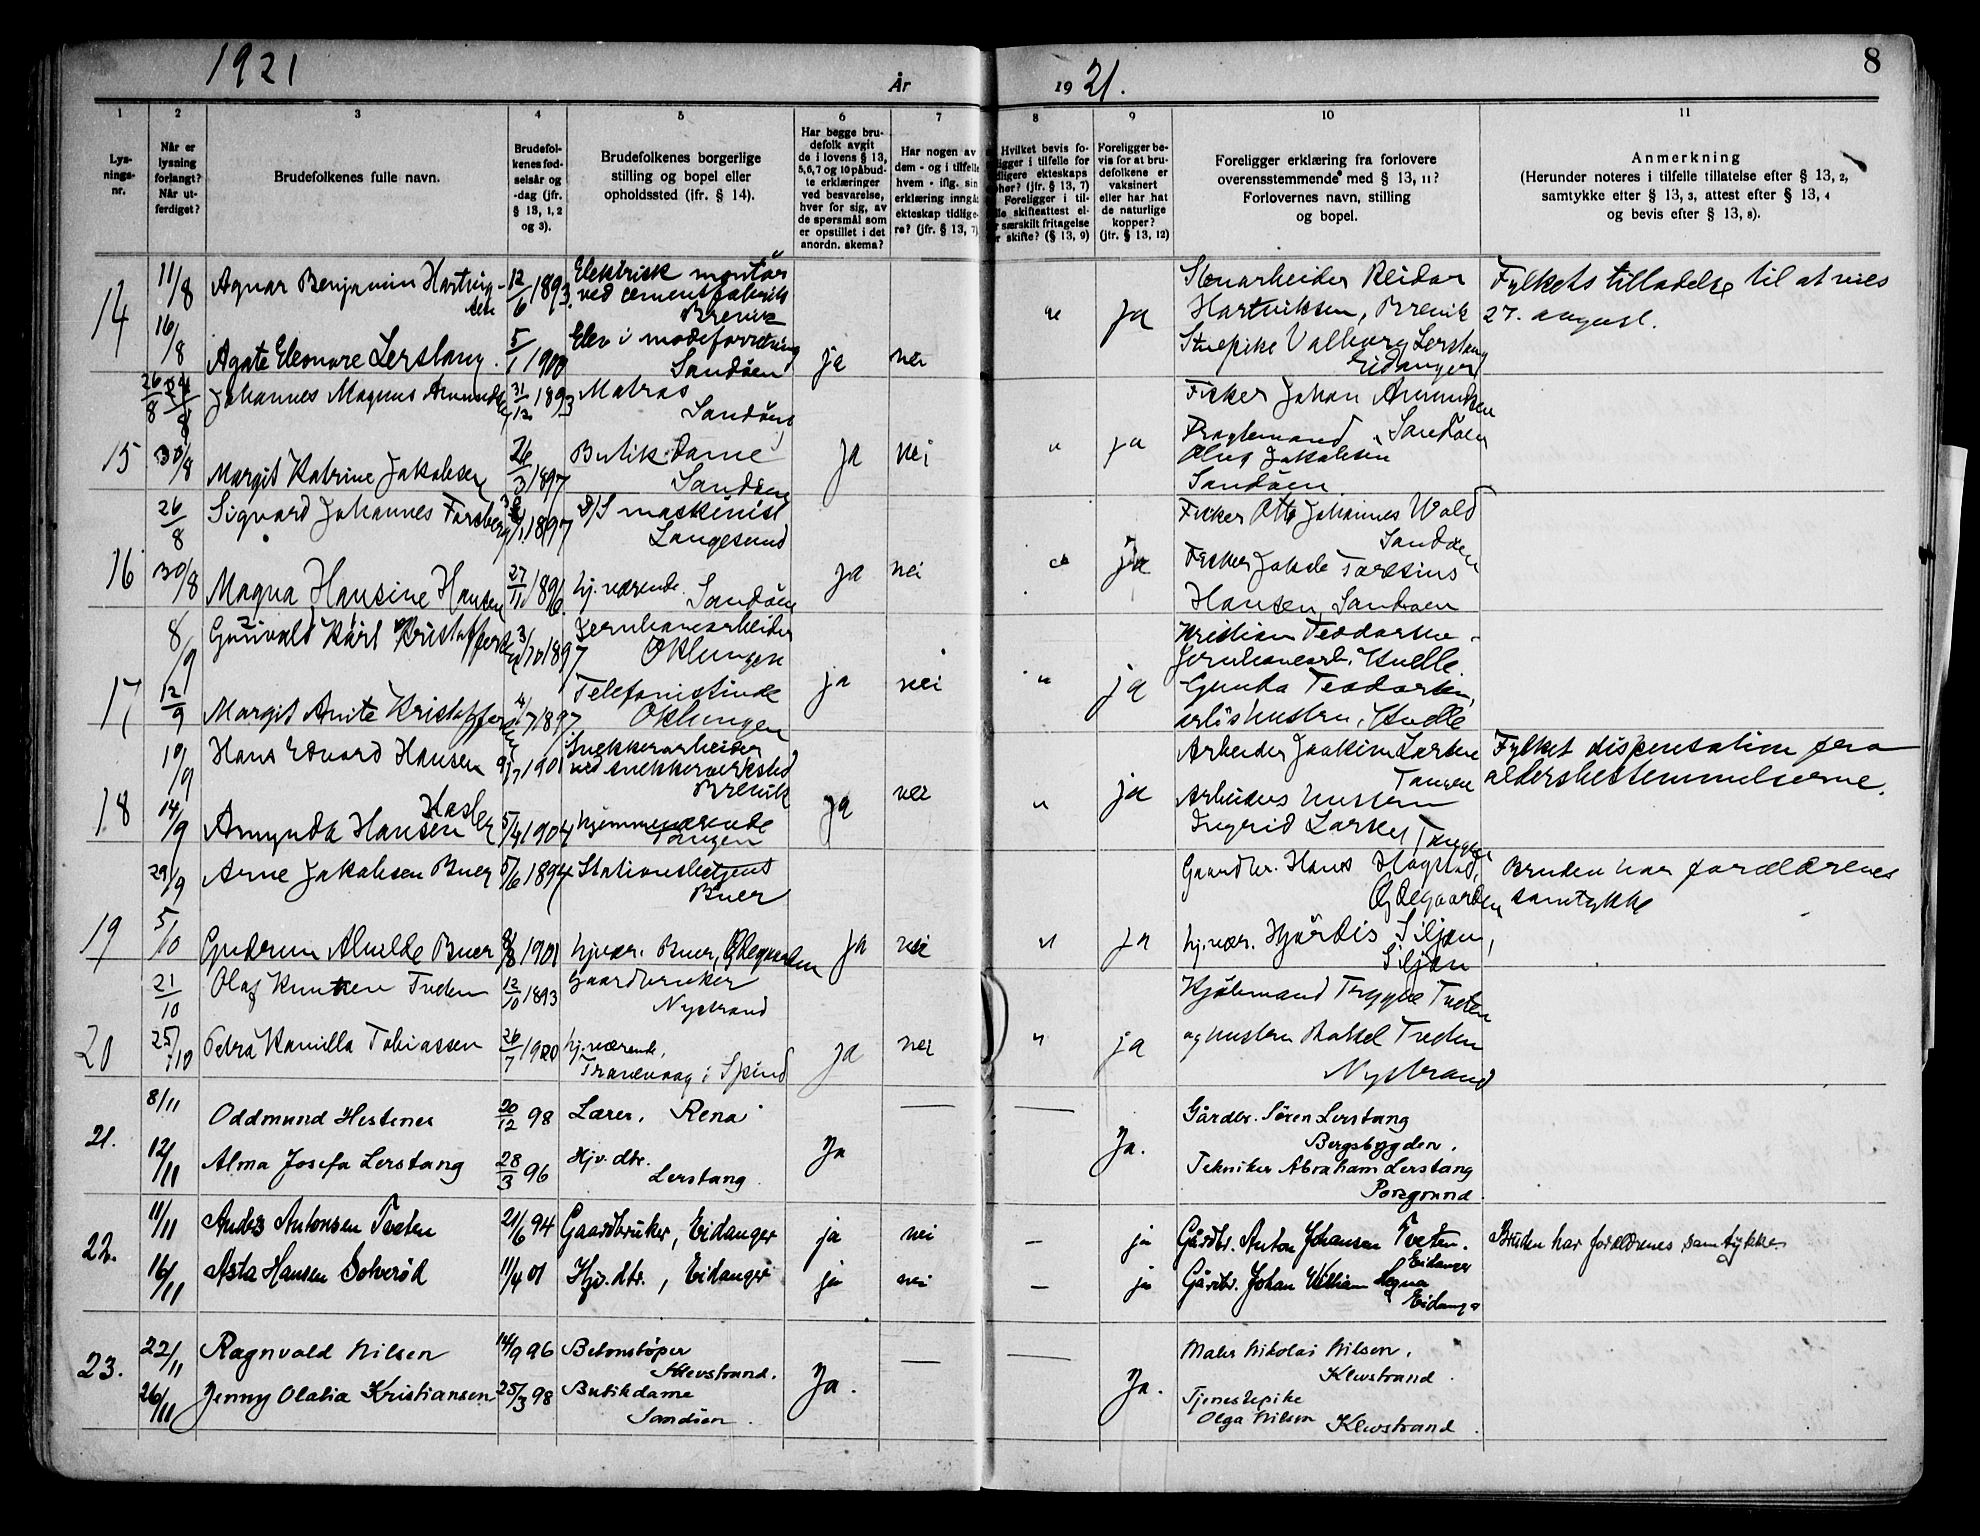 1921
År
19 21.
8
1
2
3
4
5
6
7
8
9
10
11
Lys-
nings-
nr.
Når er
lysning
forlangt?
Når ut-
ferdiget?
Brudefolkenes fulle navn.
Brudefol-
kenes fød-
selsår og
-dag (jfr.
§ 13, 1, 2
og 3).
Brudefolkenes borgerlige
stilling og bopel eller
opholdssted (ifr. § 14).
Har begge bru-
defolk avgit
de i lovens § 13,
5,6,7 og 10 påbud-
te erklæringer
ved besvarelse,
hver for sig, av
de spørsmål som
er opstillet i det
anordn. skema?
Har nogen av
dem - og i tilfelle
hvem - iflg. sin
erklæring inngåt
ekteskap tidlige-
re? (jfr. § 13, 7)
Hvilket bevis fo-
ligger i tilfelle for
dligere ekteskaps
pher? (jfr. § 13, 7)
Foreligger i til-
lle skifteattest el-
r særskilt fritagelse
r skifte? (§ 13, 9)
Foreligger be-
vis for at bru-
defolkene er
vaksinert
eller har hat
de naturlige
kopper?
(jfr. § 13, 12)
Foreligger erklæring fra forlovere
overensstemmende med § 13, 11?
Forlovernes navn, stilling
og bopel.
Anmerkning
(Herunder noteres i tilfelle tillatelse efter § 13, 2,
samtykke efter § 13, 3, attest efter § 13, 4
og bevis efter § 13, 8).
14
11/8
Agnar Benjamin
12/6 1893.
Elektrisk montør
ved cementfabrik
Brevik
Reidar
Hartviksen, Brevik
Fylkets tilladelse til at vies
27. august.
Ja
16/8
Agate Eleonore Lerstang.
5/1 1900
Elev i modeforretning
Sandöen
ja
nei
Valborg Lerstang
Eidanger
15
26/8
Johannes Magnus Amundsen
31/12 1893
Matros
Sandöen
Fisker Johan Amundsen
Sandöen
30/8
Margit Katrine Jakobsen
26/3 1897
Butik-Dame
Sandöen
Ja
nei
"
ja
Olus Jakobsen
Sandöen
16
26/8
Sigvard Johannes Forsberg
1897
D/S maskinist
Langesund
Fisker Otto Johannes Wold
Sandöen
30/8
Magna Hansine Hansen
27/11 1896.
hj. værende.
Sandöen
ja
nei
Ja
Fisker
Hansen, Sandöen
17
8/9
Karl Kristoffersen
3/10 1897
Jernbanearbeider
Oklungen
Kristian Teodorsen
Jernbanearb.
12/9
Margit Anite Kristoffersen
4/7 1897
Telefonistinde
Oklungen
ja
nei
"
ja
Gunda Teodorsen,
18
10/9
Hans Edvard Hansen
9/7 1901
Snekkerarbeider
ved snekkerverksted
Brevik
Arbeider Joakim Larsen
Tangen
Fylket dispensation fra
aldersbestemmelserne.
14/9
Hansen
5/4 1904
hjemmeværende
Tangen
ja
nei
"
ja
Arbeiders hustru
Ingrid Larsen, Tangen
19
29/9
Arne Jakobsen Buer
5/6 1894
Stationsbetjent
Buer
Gaardbr. Hans Hogstad,
Ødegaarden
Bruden har forældrenes
samtykke
5/10
Gudrun Alvilde Buer
8/8 1901
hjvær. Buer, Ødegaarden
ja
nei
"
ja
hj.vær. Hjördis Siljan,
Siljan
20
21/10
Olaf Knutsen Tveten
12/10 1893
Gaardbruker
Nystrand
Hjólemand Trygve Tveten
25/10
Petra Kamilla Tobiassen
26/7 1900
hj.værende,
i Spind
ja
nei
"
ja
og hustru Rakel Tveten
Nystrand
21.
8/11
Oddmund Hestenes
20/12 98
Lærer, Rena
—
—
Gårdbr. Sören Lerstang
Bergsbygden.
12/11
Alma Josefa Lerstang
28/3 96
Hjv. dtr.
Lerstang.
Ja
Ja.
Tekniker Abraham Lerstang
Porsgrund.
22.
11/11
Anders Antonsen Tveten
21/6 94
Gaardbruker, Eidanger
ja
nei
—
ja
Gårdbr. Anton Johansen Tveten.
Eidanger
Bruden har forældrenes samtykke
16/11
Asta Hansen Solverød
11/4 01
Hjv. dtr., Eidanger
ja
nei
—
ja
Gårdbr. Johan William Legna
Eidanger
23.
22/11
Ragnvald Nilsen
14/9 96
Betonstöper
Klevstrand.
—
—
Maler Nikolai Nilsen,
Klevstrand.
26/11
Jenny Olalia Kristiansen
25/3 98
Butikdame
Sandöen.
Ja.
Ja.
Tjenestepike
Olga Nilsen Klevstrand.